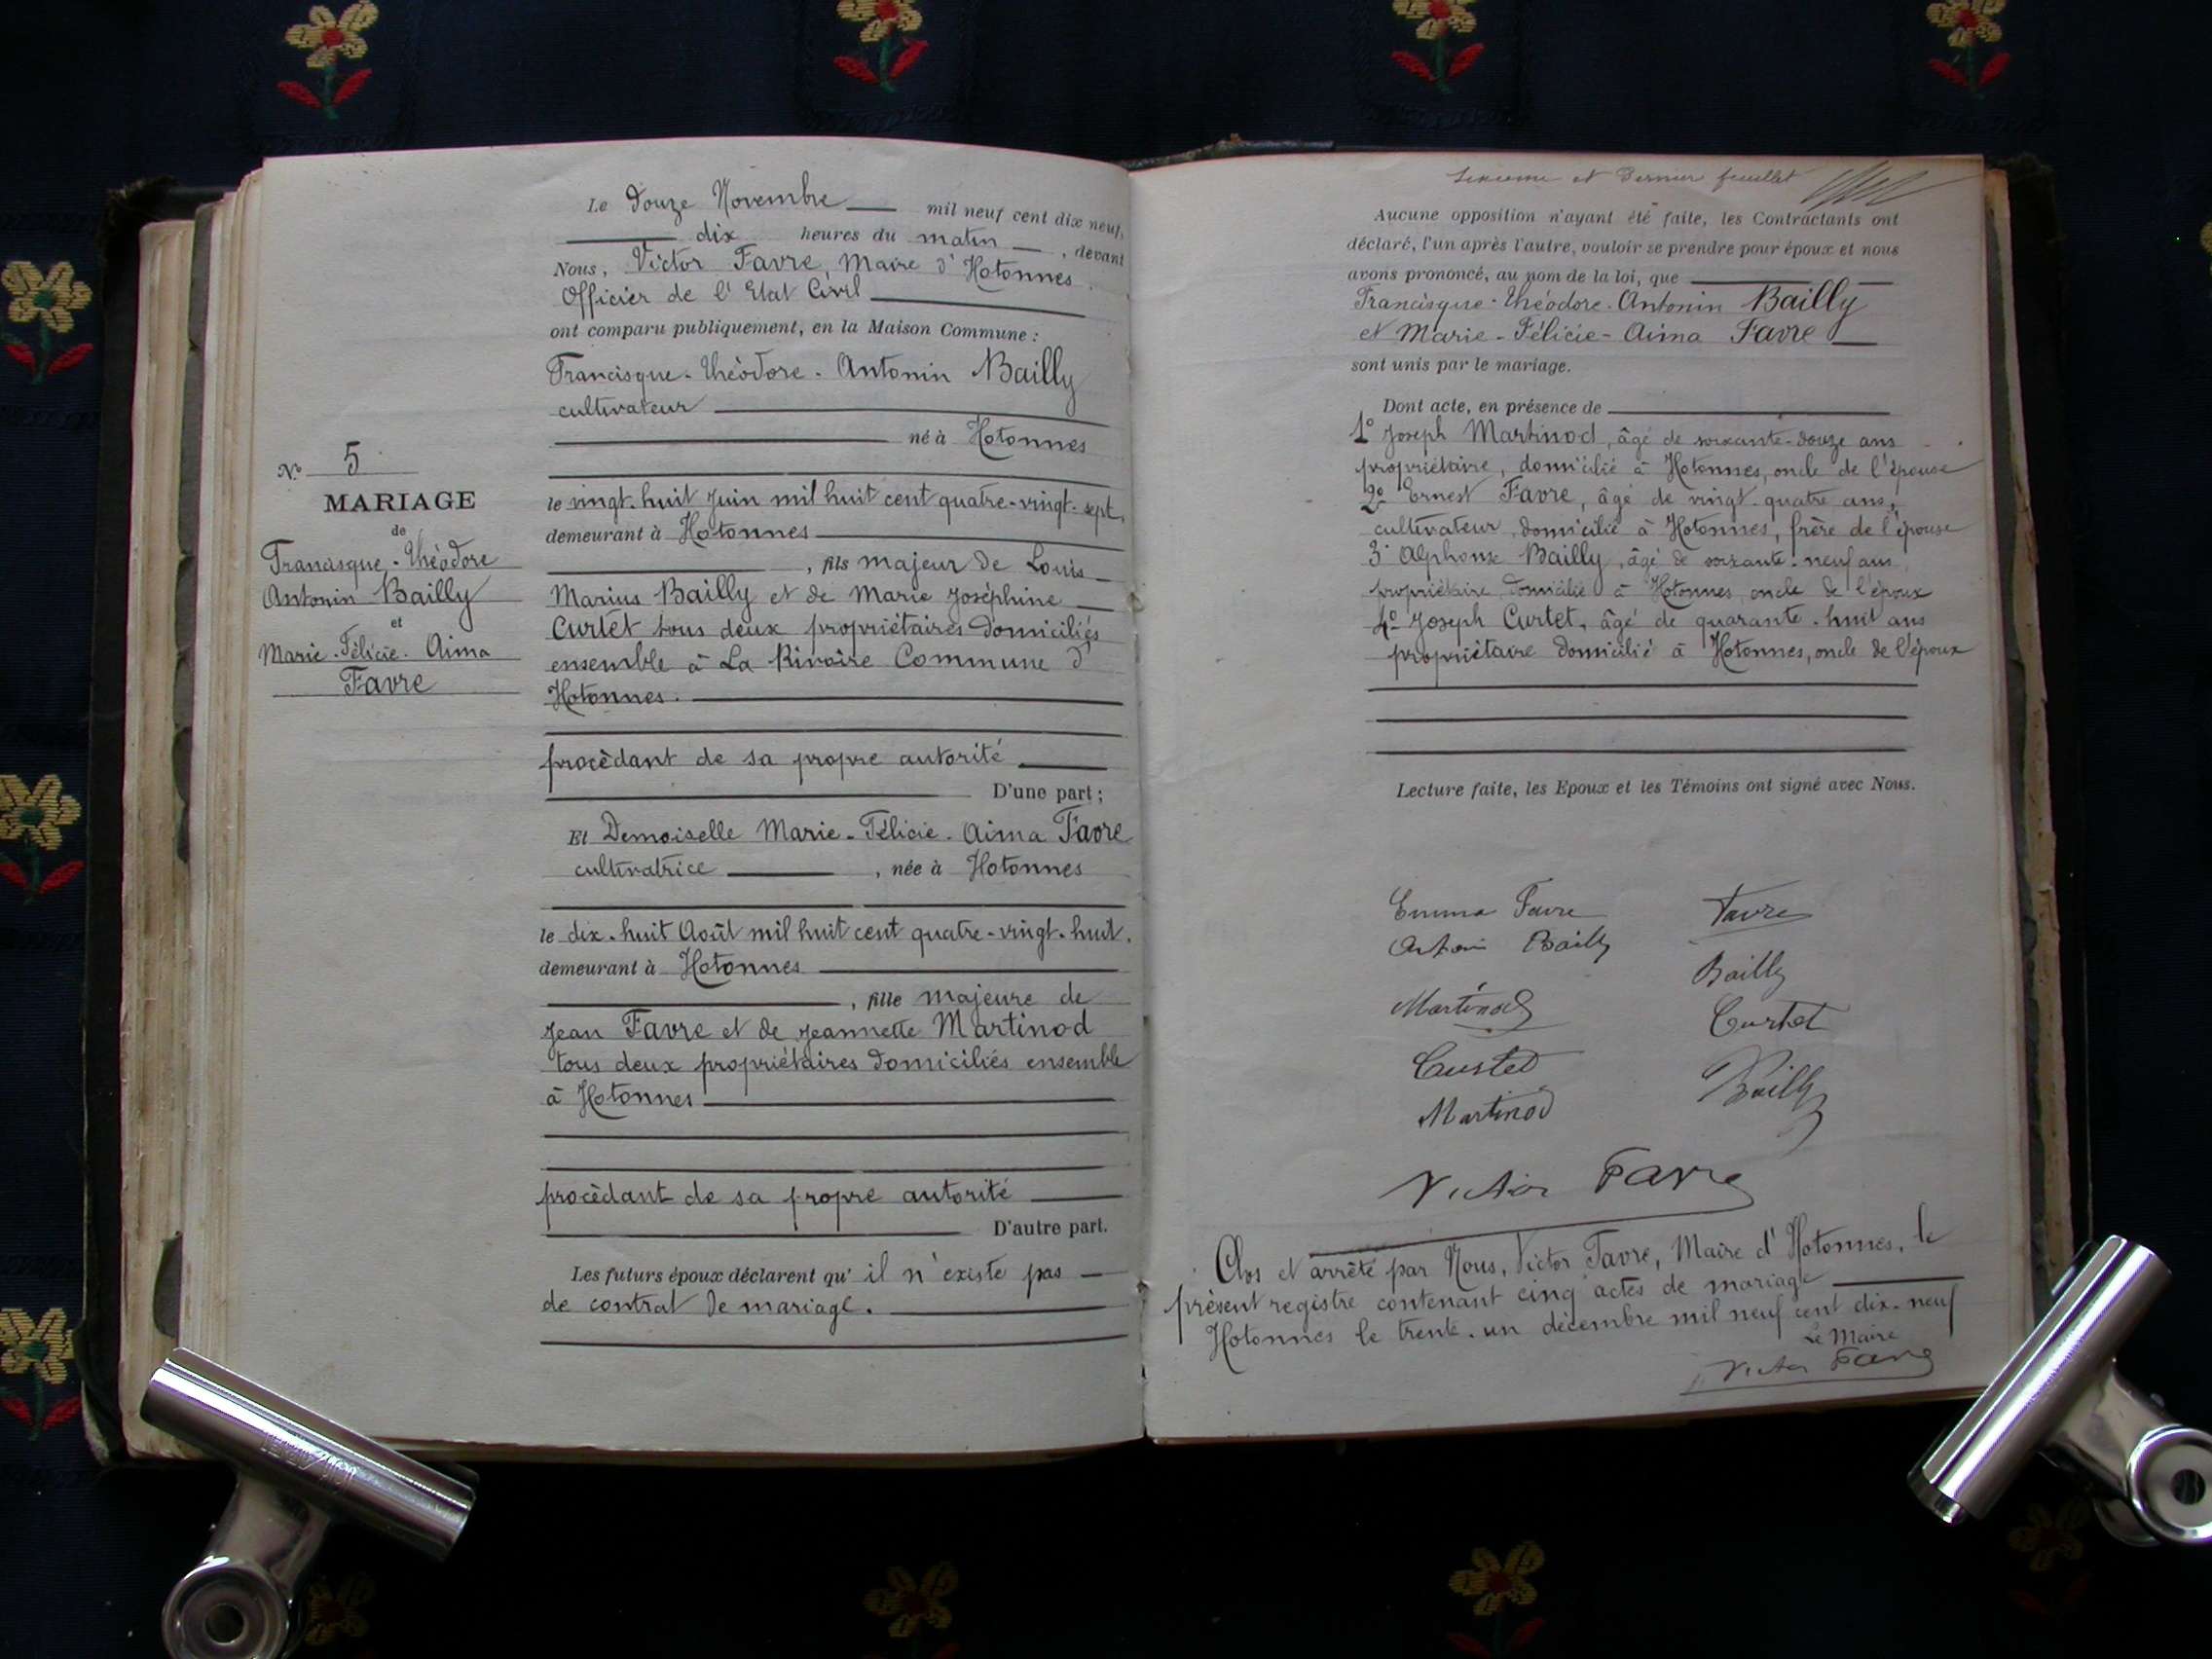 Le douze Novembre mil neuf cent dix neuf,
dix heures du matin, devant
Nous, Victor Favre, Maire d'Hotonnes
Officier de l'Etat Civil
ont comparu publiquement, en la Maison Commune :
Francisque-Théodore-Antonin Bailly
cultivateur
né à Hotonnes
le vingt-huit Juin mil huit cent quatre-vingt-sept,
demeurant à Hotonnes
, fils majeur de Louis
Marius Bailly et de Marie Joséphine
Curtet tous deux propriétaires domiciliés
ensemble à La Rivoire Commune d'
Hotonnes.
procèdant de sa propre autorité
D'une part ;
Et Demoiselle Marie-Félicie-Aima Favre
cultivatrice, née à Hotonnes
le dix-huit Août mil huit cent quatre-vingt-huit.
demeurant à Hotonnes
, fille majeure de
Jean Favre et de Jeannette Martinod
tous deux propriétaires domiciliés ensemble
à Hotonnes
procèdant de sa propre autorité
D'autre part.
Les futurs époux déclarent qu'il n'existe pas
de contrat de mariage.
N° 5
MARIAGE
de
Francisque-Théodore
Antonin Bailly
et
Marie-Félicie-Aima
Favre
et Dernier feuillet
Aucune opposition n'ayant été faite, les Contractants ont
déclaré, l'un après l'autre, vouloir se prendre pour époux et nous
avons prononcé, au nom de la loi, que
Francisque-Théodore-Antonin Bailly
et Marie-Félicie-Aima Favre
sont unis par le mariage.
Dont acte, en présence de
1° Joseph Martinod, âgé de soixante-douze ans
propriétaire, domicilié à Hotonnes, oncle de l'épouse
2° Ernest Favre, âgé de vingt-quatre ans,
cultivateur, domicilié à Hotonnes, frère de l'épouse
3° Alphonse Bailly, âgé de soixante-neuf ans,
propriétaire, domicilié à Hotonnes, oncle de l'époux
4° Joseph Curtet, âgé de quarante-huit ans
propriétaire domicilié à Hotonnes, oncle de l'époux
Lecture faite, les Epoux et les Témoins ont signé avec Nous.
Emma Favre Favre
Antonin Bailly
Bailly
Martinod Curtet
Curtet Bailly
Martinod
Victor Favre
Clos et arrêté par Nous, Victor Favre, Maire d'Hotonnes, le
présent registre contenant cinq actes de mariage
Hotonnes le trente-un décembre mil neuf cent dix-neuf
Le Maire
Victor Favre